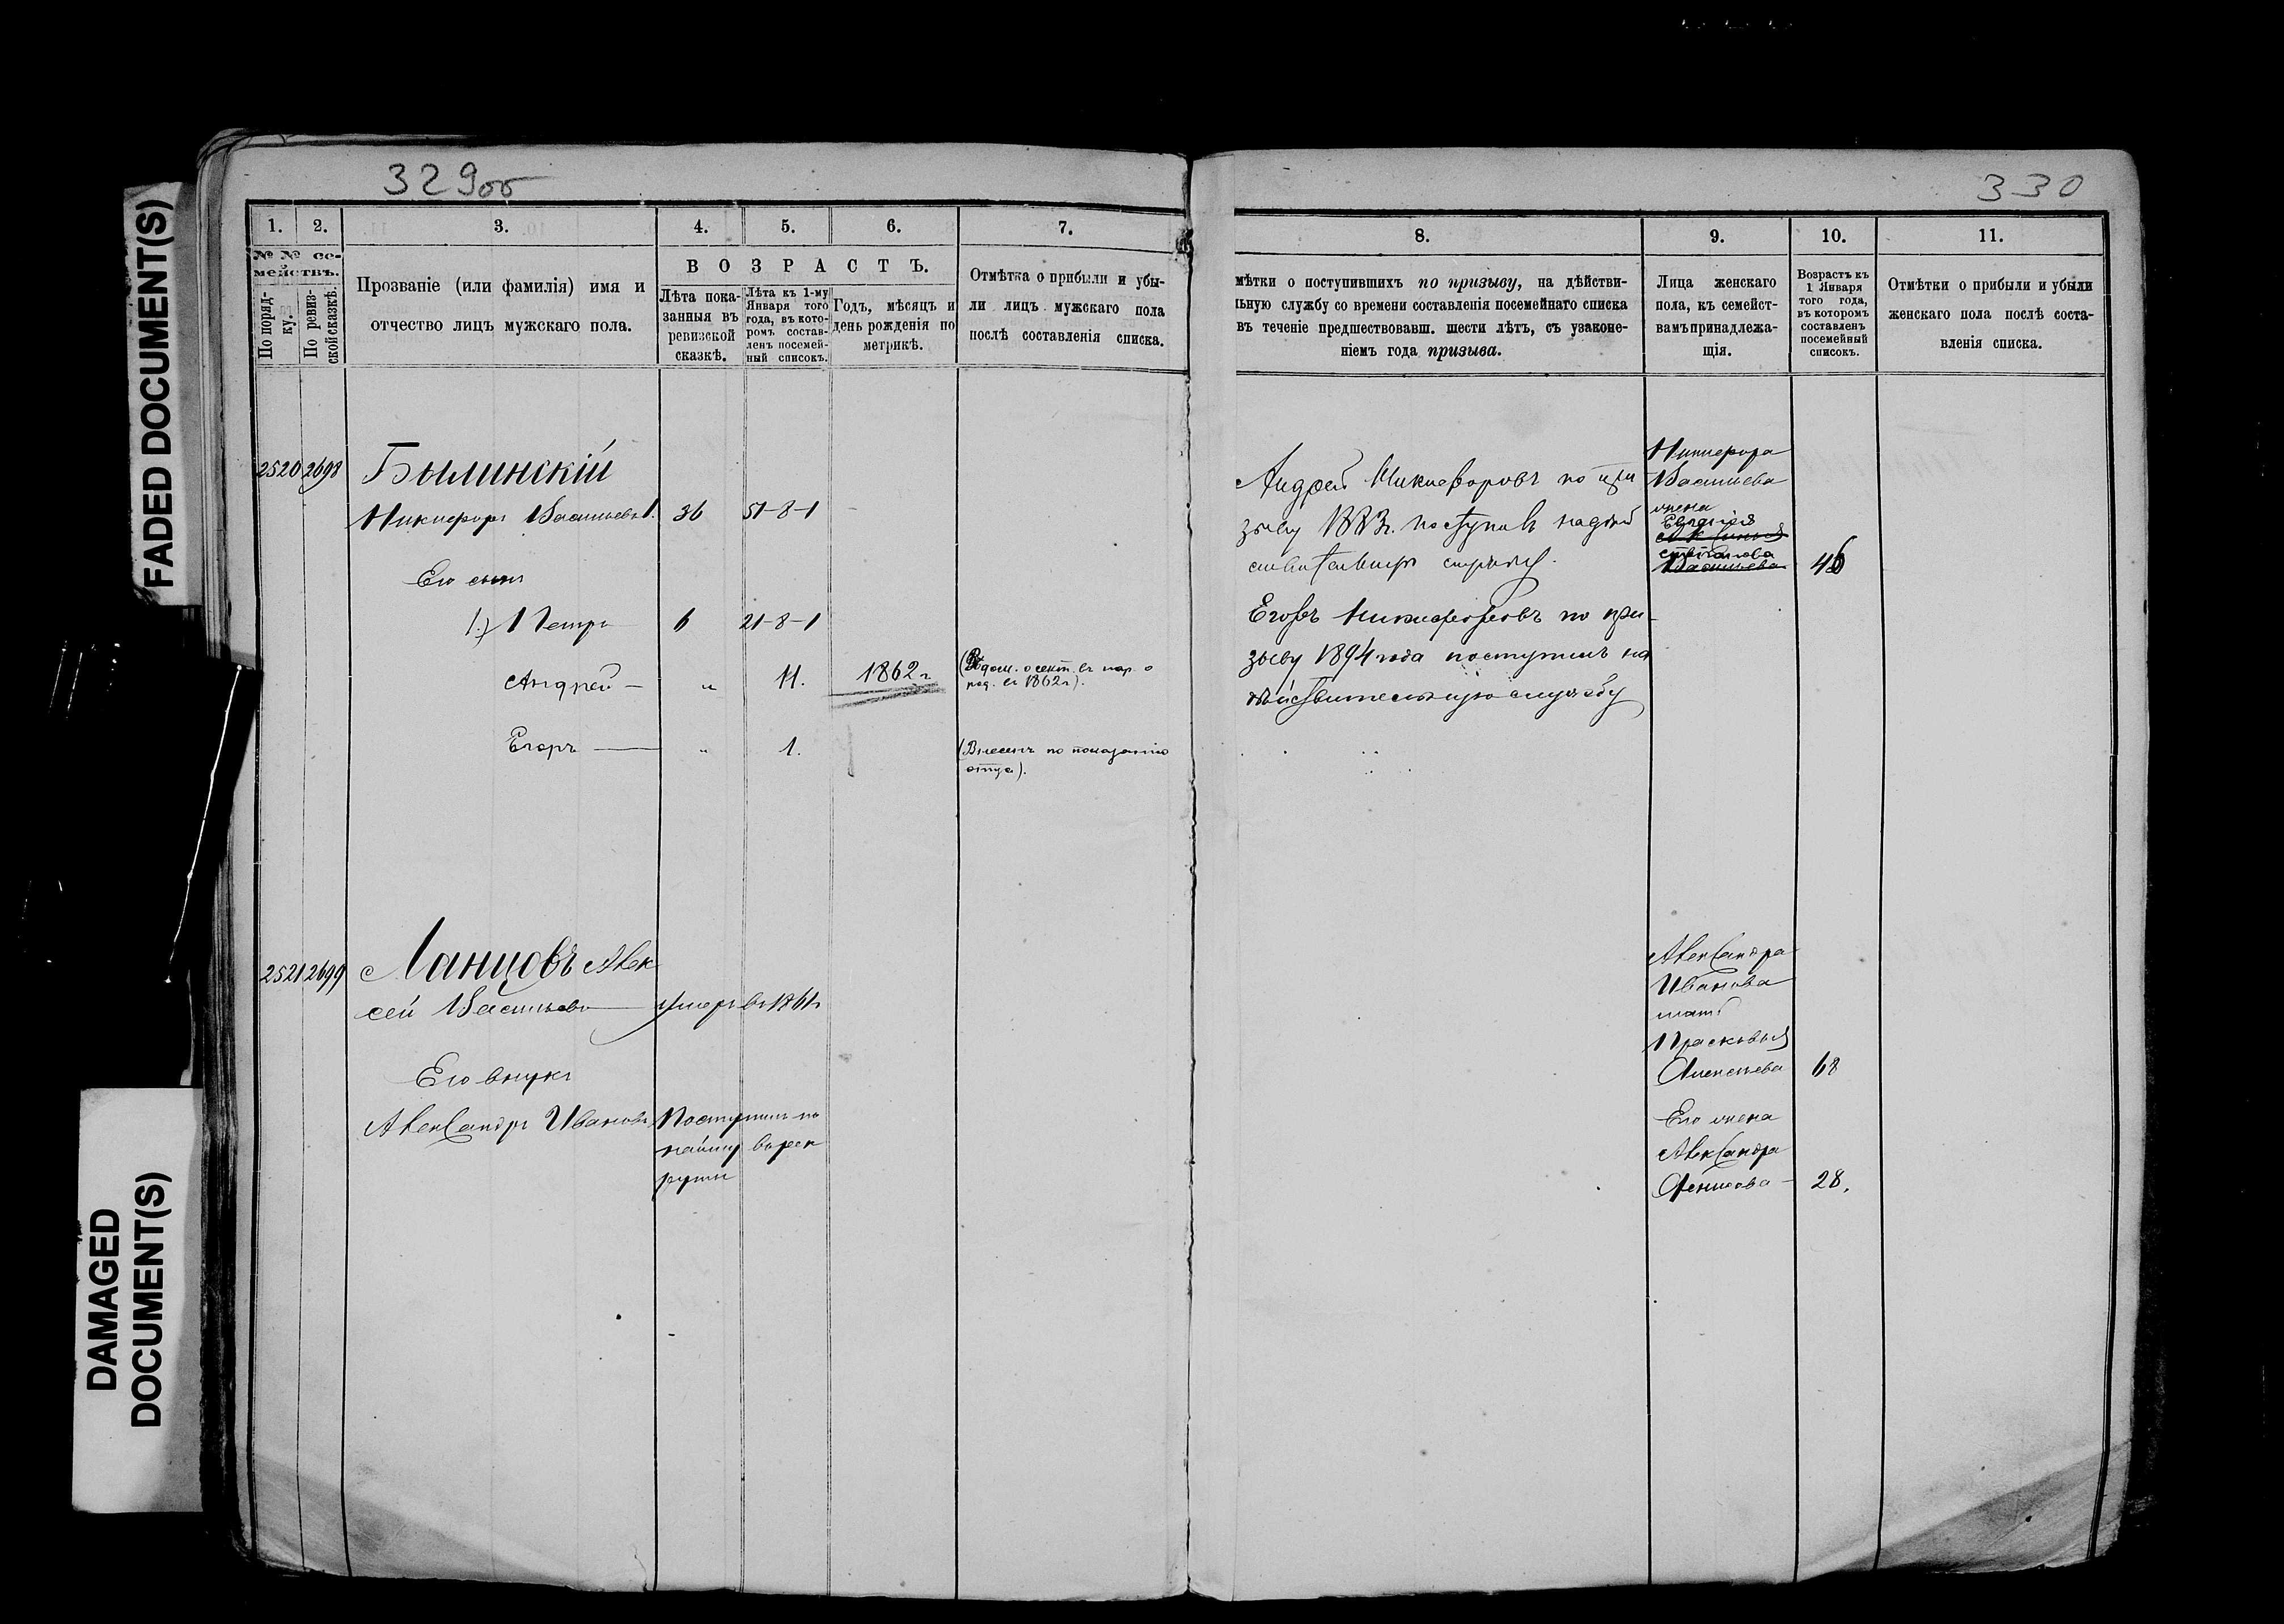 FAADED DOCUMENT(S)
DAMAGED
DOCUMENT(S)
329об
1. 2. 3. 4. 5. 6. 7.
№ № се-
мействъ.
По поряд-
ку.
По ревиз-
ской сказкѣ.
Прозваніе (или фамилія) имя и
отчество лицъ мужскаго пола.
ВОЗРАСТЪ.
Лѣта пока-
занныя въ
ревизской
сказкѣ.
Лѣта къ 1-му
Января того
года, въ кото-
ромъ состав-
ленъ посемей-
ный списокъ.
Годъ, мѣсяцъ и
день рожденія по
метрикѣ.
Отмѣтка о прибыли и убы-
ли лицъ мужскаго пола
послѣ составленія списка.
2520 2698 Былинскій
Никифоръ Васильевъ 36 51-8-1
Его сынъ
1.) Петръ 6 21-8-1
Андрей — „ 11. 1862 г
род. въ 1862 г).
Егоръ — „ 1. (Внесенъ по показанію
отца).
2521 2699 Ланцовъ Алек
сей Васильевъ — умеръ въ 1861г
Его внукъ
Александръ Ивановъ Поступилъ по
найму въ рек
руты
330
8. 9. 10. 11.
мѣтки о поступившихъ по призыву, на дѣйстви-
льную службу со времени составленія посемейнаго списка
въ теченіе предшествовавш. шести лѣтъ, съ узаконе-
ніемъ года призыва.
Лица женскаго
пола, къ семейст-
вамъ принадлежа-
щія.
Возрастъ къ
1 Января
того года,
въ которомъ
составленъ
посемейный
списокъ.
Отмѣтки о прибыли и убыли
женскаго пола послѣ соста-
вленія списка.
Андрей Никифоровъ по при
зыву 1883г. поступилъ на дѣй
ствительную службу.
Егоръ Никифоровъ по при-
зыву 1894 года поступилъ на
дѣйствительную службу
Никифора
Васильева
жена
Степанова
Васильева
Александра
Иванова
мать
Прасковья
Алексѣева 68
Его жена
Александра
Денисова — 28.